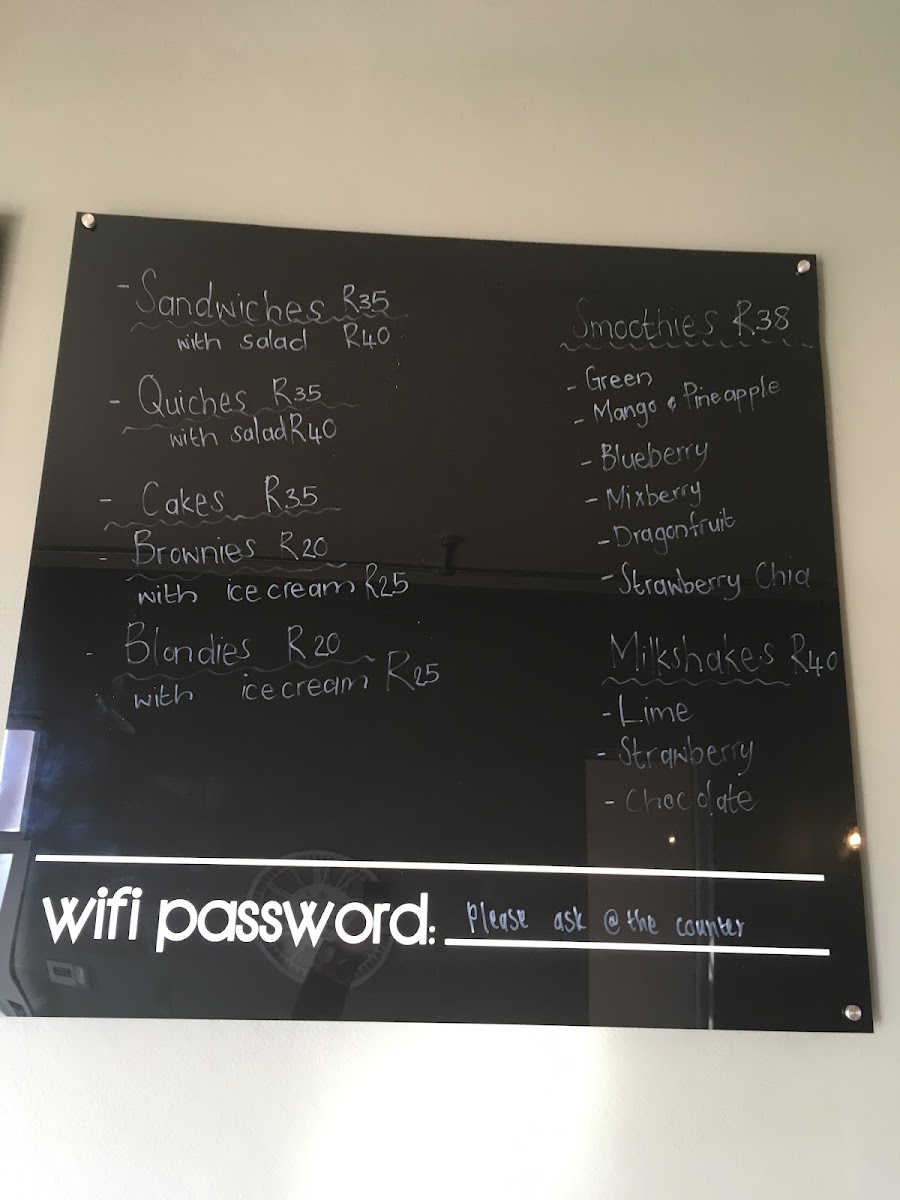 - Sandwiches R35
with salad R40
- Quiches R35
with salad R40
- Cakes R35
- Brownies R20
with ice cream R25
- Blondies R20
with ice cream R25
Smoothies R38
- Green
- Mango & Pineapple
- Blueberry
- Mixberry
- Dragonfruit
- Strawberry Chia
Milkshakes R40
- Lime
- Strawberry
- Chocolate
wifi password: Please ask @ the counter